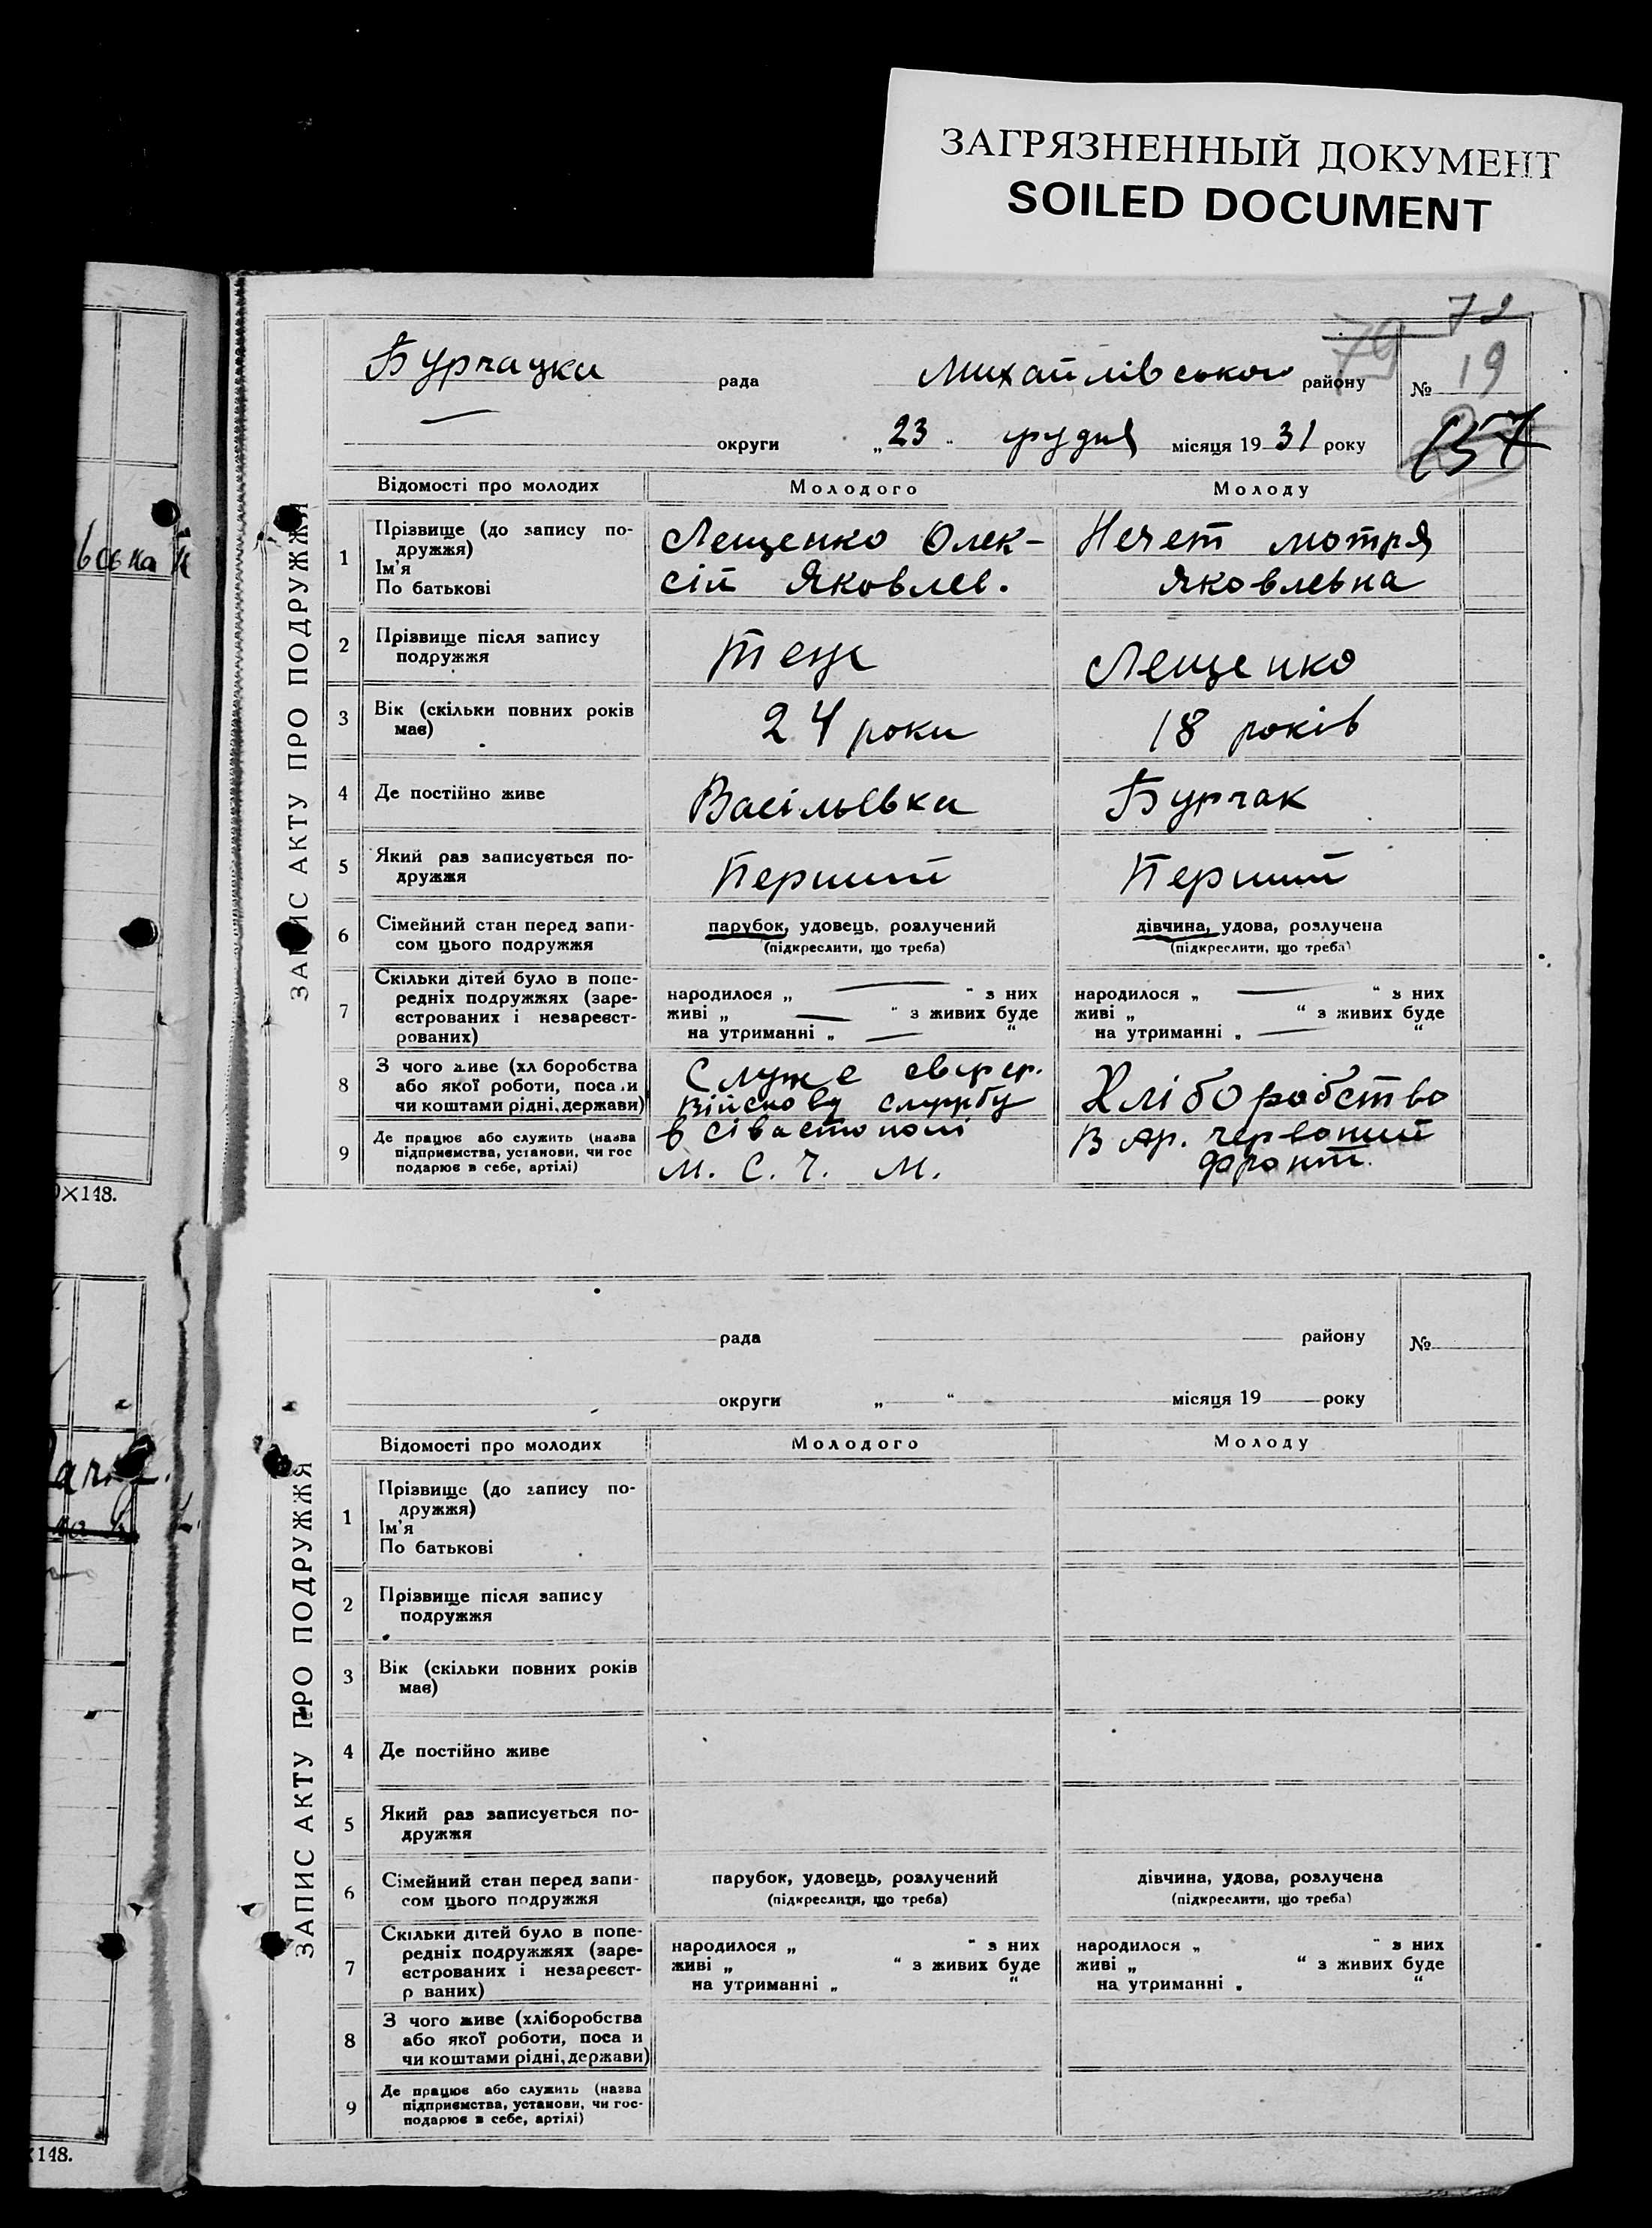 ЗАГРЯЗНЕННЫЙ ДОКУМЕНТ
SOILED DOCUMENT
72
79
Бурчацка рада Михайлівського району № 19
округи „23" грудня місяця 1931 року
137
ЗАПИС АКТУ ПРО ПОДРУЖЖЯ
Відомості про молодих Молодого Молоду
1 Прізвище (до запису по-
дружжя)
Ім'я
По батькові
Лещенко Олек-
сій Яковлев.
Нечет мотря
Яковлевна
2 Прізвище після запису
подружжя
теж
Лещенко
3 Вік (скільки повних років
має)
24 роки
18 років
4 Де постійно живе
Васільевка
Бурчак
5 Який раз записується по-
дружжя
Перший
Перший
6 Сімейний стан перед запи-
сом цього подружжя
парубок, удовець, розлучений
(підкреслити, що треба)
дівчина, удова, розлучена
(підкреслити, що треба)
7 Скільки дітей було в попе-
редніх подружжях (заре-
єстрованих і незареєст-
рованих)
народилося „ — " з них
живі „ — " з живих буде
на утриманні „ — "
народилося „ — " з них
живі „ " з живих буде
на утриманні „ — "
8 З чого живе (хл боробства
або якої роботи, поса и
чи коштами рідні, держави)
Служе
військову службу
Хліборобство
9 Де працює або служить (назва
підприємства, установи, чи гос
подарює в себе, артілі)
в сівастополі
М. С. Ч. М.
В Ар. червоний
фронт.
0×148.
рада району №
округи „ " місяця 19 року
ЗАПИС АКТУ ПРО ПОДРУЖЖЯ
Відомості про молодих Молодого Молоду
1 Прізвище (до запису по-
дружжя)
Ім'я
По батькові
2 Прізвище після запису
подружжя
3 Вік (скільки повних років
має)
4 Де постійно живе
5 Який раз записується по-
дружжя
6 Сімейний стан перед запи-
сом цього подружжя
парубок, удовець, розлучений
(підкреслити, що треба)
дівчина, удова, розлучена
(підкреслити, що треба)
7 Скільки дітей було в попе-
редніх подружжях (заре-
єстрованих і незареєст-
р ваних)
народилося „ " з них
живі „ " з живих буде
на утриманні „ "
народилося „ " з них
живі „ " з живих буде
на утриманні „ "
8 З чого живе (хліборобства
або якої роботи, поса и
чи коштами рідні, держави)
9 Де працює або служить (назва
підприємства, установи, чи гос-
подарює в себе, артілі)
×148.